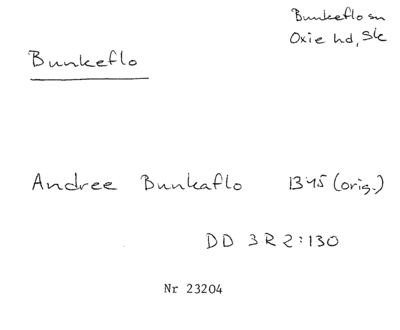 Bunkeflo sn
Oxie hd, Sk
Bunkeflo
Andree Bunkaflo 1345 (orig.)
DD 3R2:130
Nr 23204